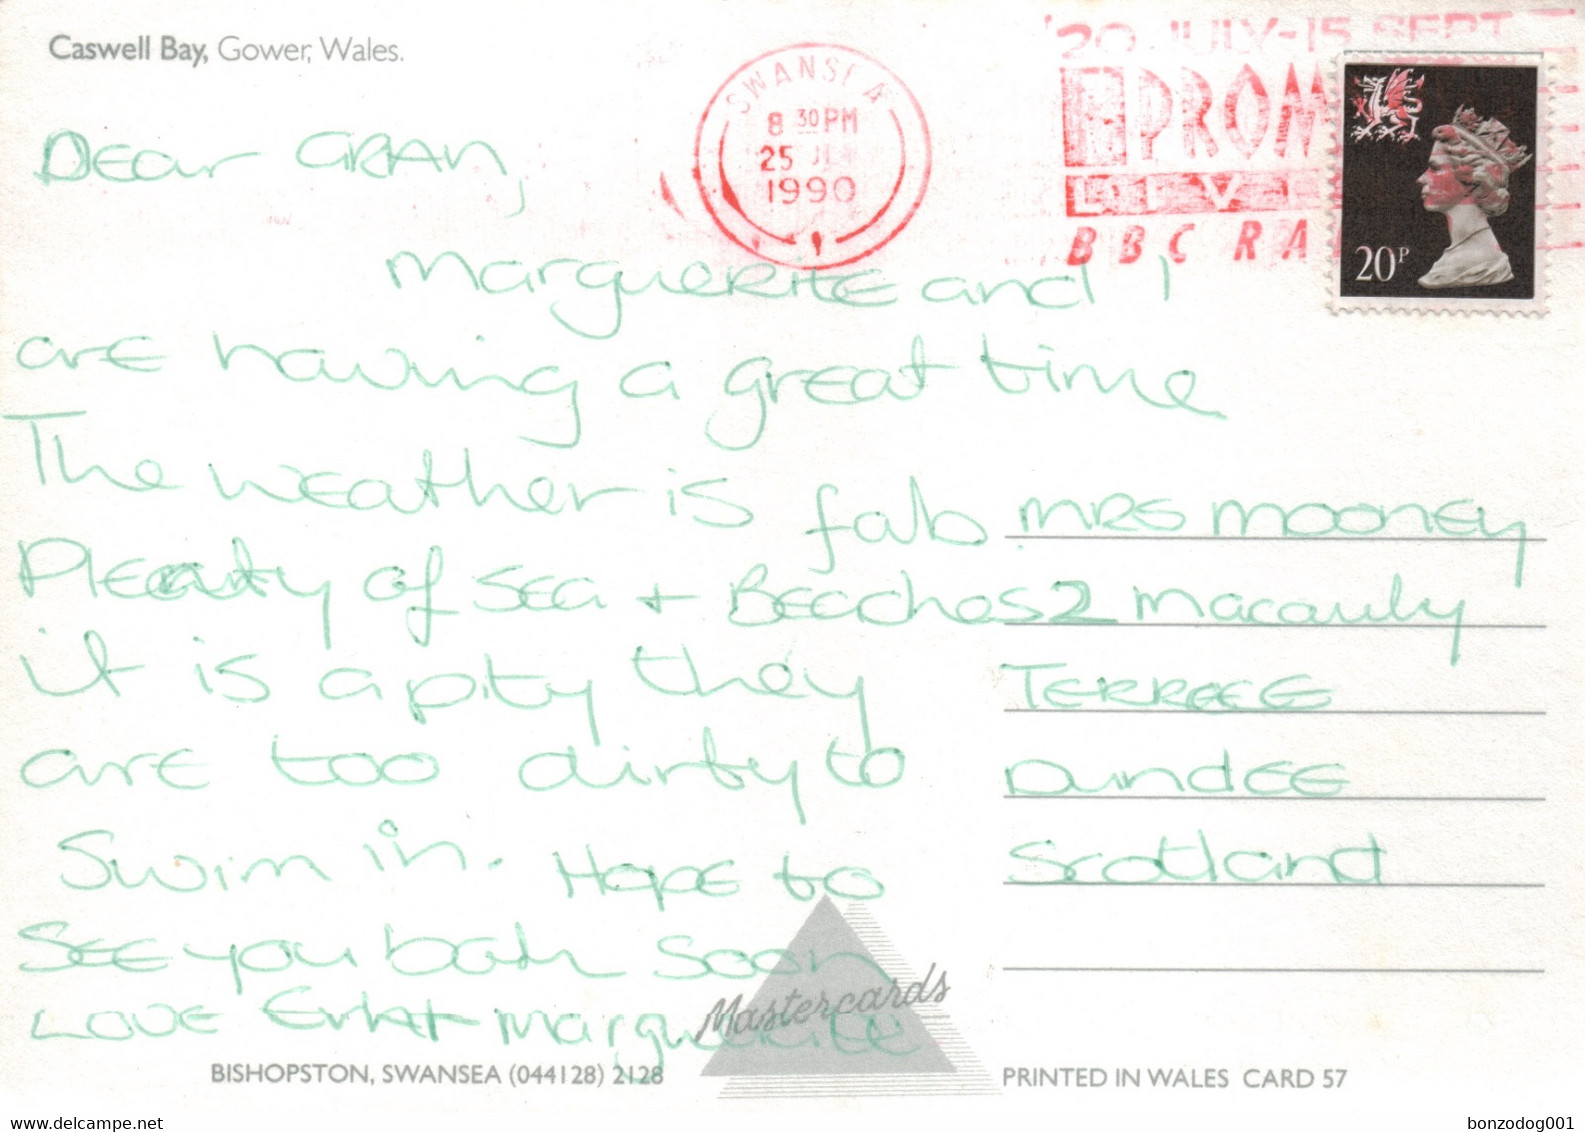 Caswell Bay, Gower, Wales.
SWANSEA
8 30PM
25
1990
20 JULY-15 SEPT
PROM
LIV
BBC RA
20P
Dear GRAN,
Marguerite and I
are having a great time
The weather is fab
Plenty of Sea + Beaches
it is a pity they
are too dirty to
Swim in. Hope to
See you both soon
Love
+ Marguerite
MRS Mooney
2 Macauly
Terrace
Dundee
Scotland
Mastercards
BISHOPSTON, SWANSEA (044128) 2128
PRINTED IN WALES CARD 57
bonzodog001